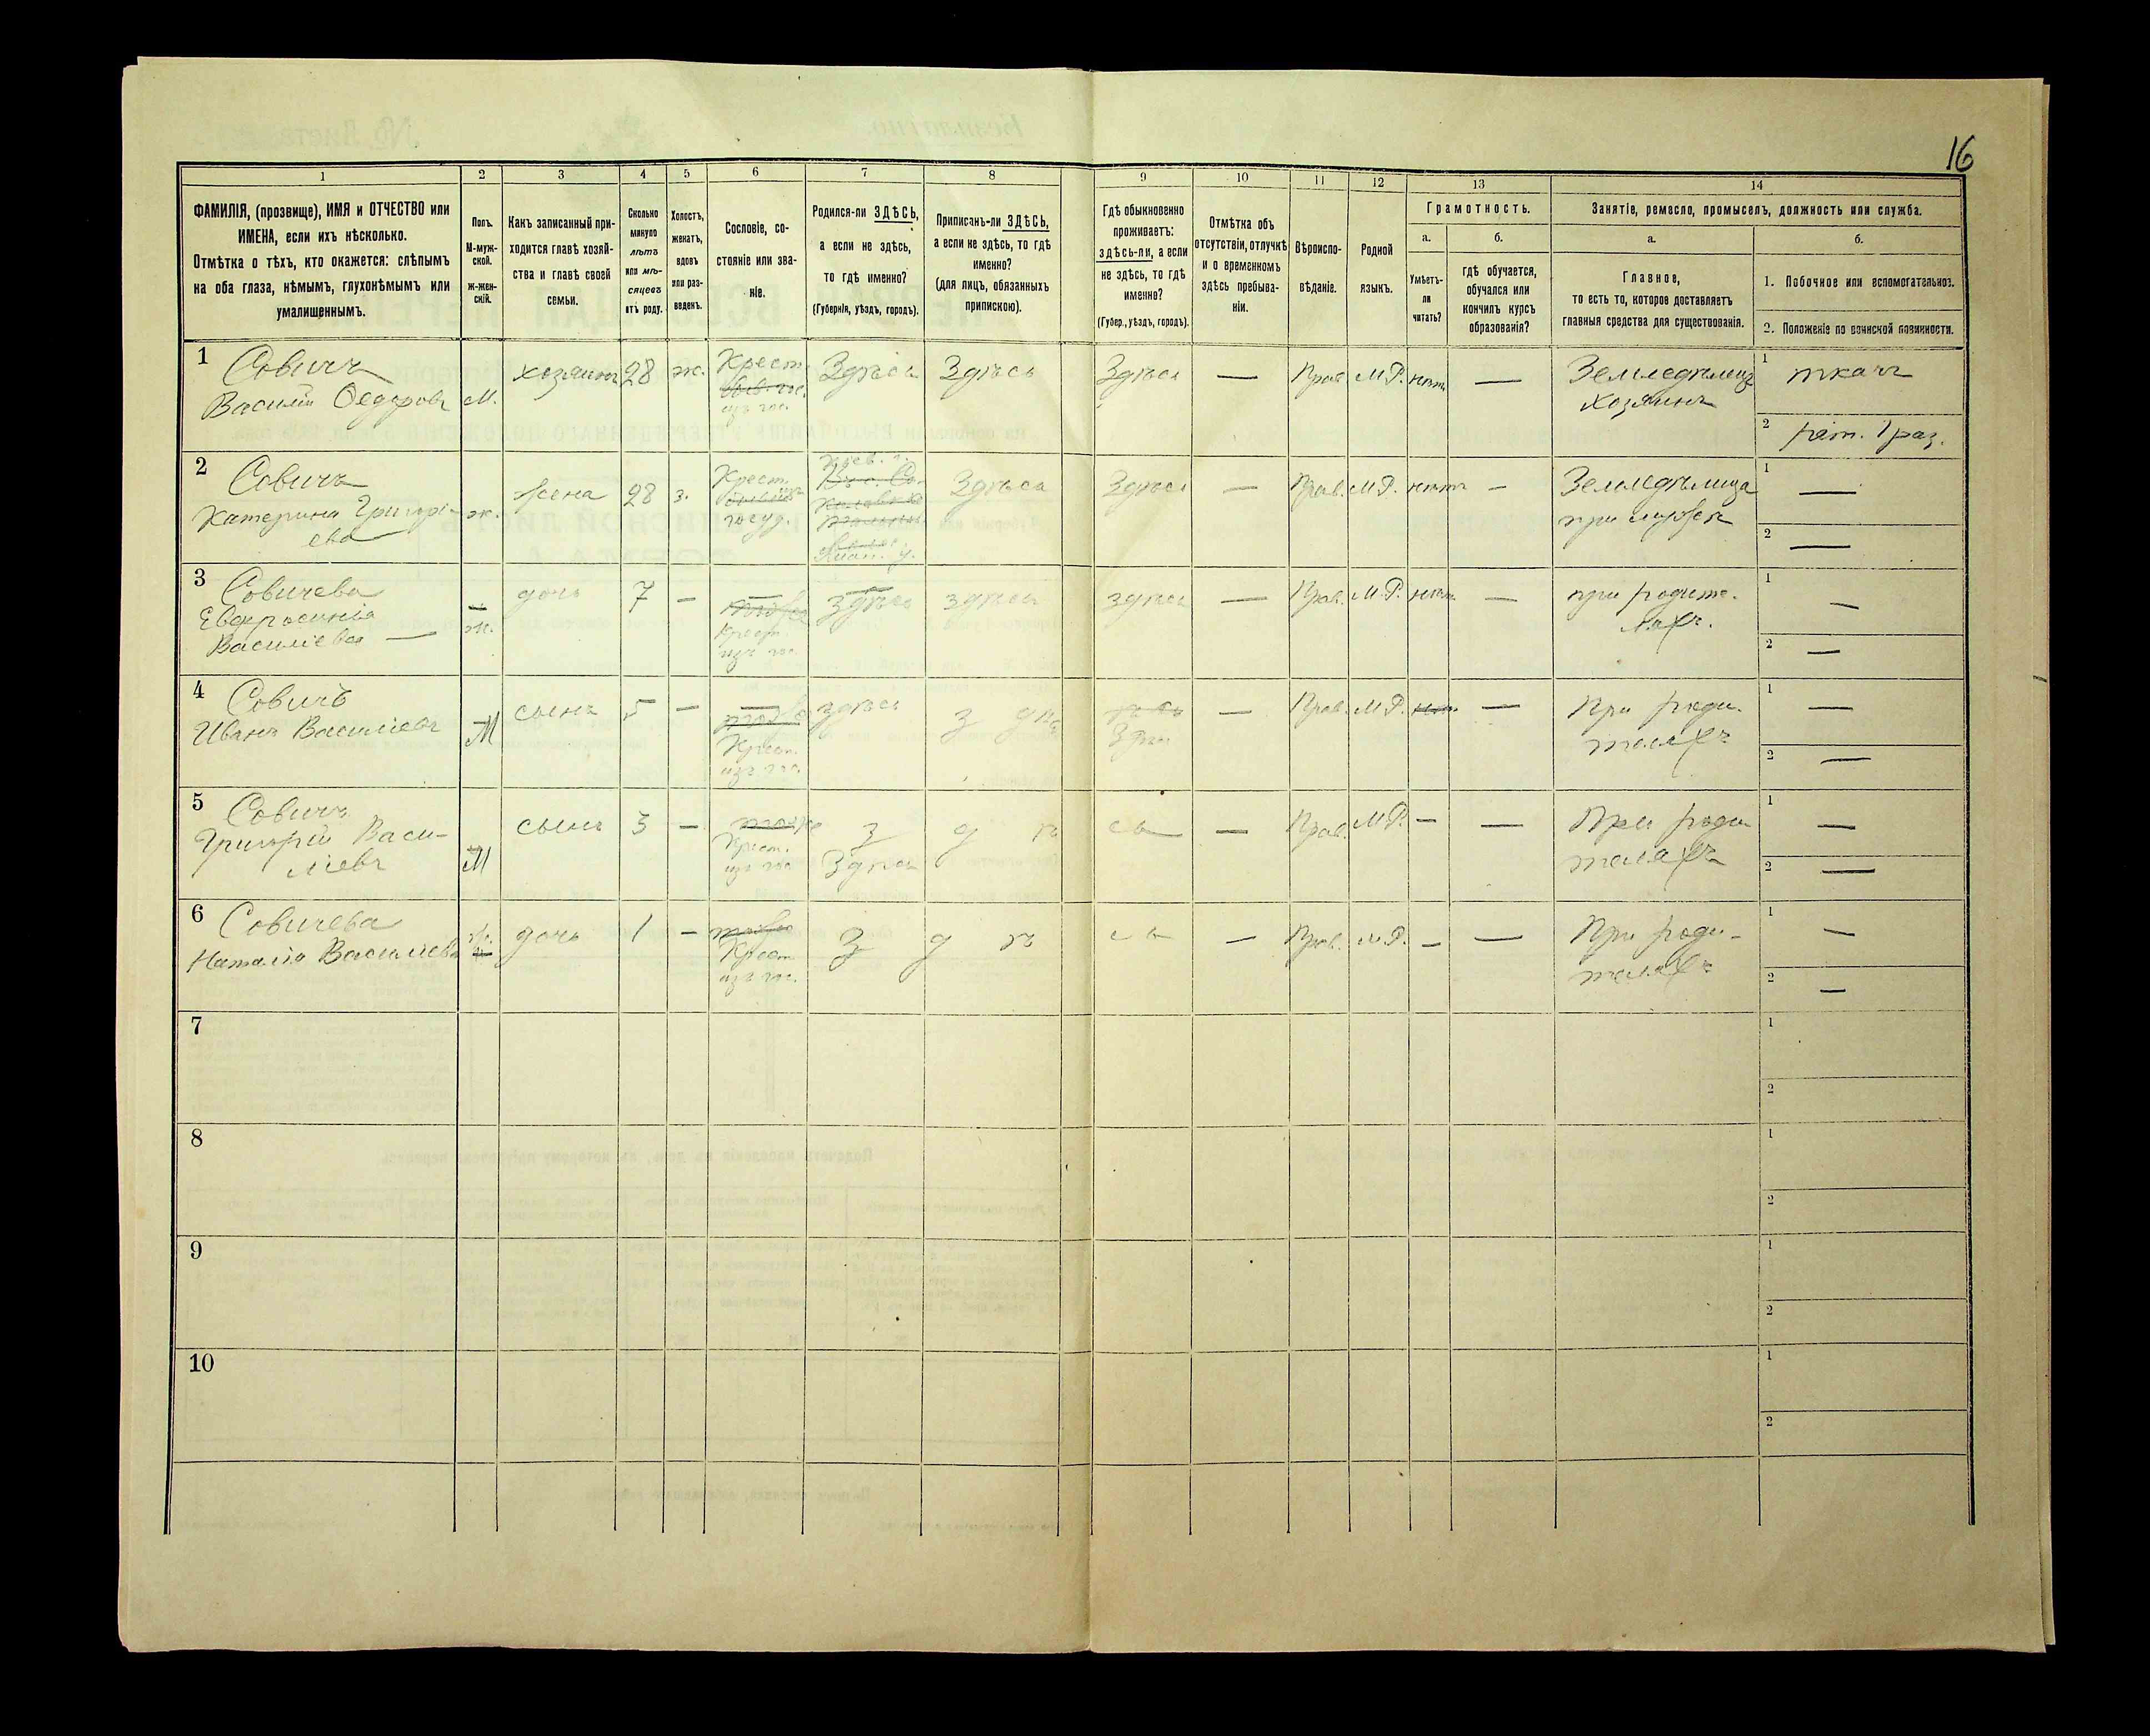 16
1 2 3 4 5 6 7 8 9 10 11 12 13 14
ФАМИЛІЯ, (прозвище), ИМЯ и ОТЧЕСТВО или
ИМЕНА, если ихъ нѣсколько.
Отмѣтка о тѣхъ, кто окажется: слѣпымъ
на оба глаза, нѣмымъ, глухонѣмымъ или
умалишеннымъ.
Полъ.
М-муж-
ской.
ж-жен-
скій.
Какъ записанный при-
ходится главѣ хозяй-
ства и главѣ своей
семьи.
Сколько
минуло
лѣтъ
или мѣ-
сяцевъ
отъ роду.
Холостъ,
женатъ,
вдовъ
или раз-
веденъ.
Сословіе, со-
стояніе или зва-
ніе.
Родился-ли ЗДѢСЬ,
а если не здѣсь,
то гдѣ именно?
(Губернія, уѣздъ, городъ).
Приписанъ-ли ЗДѢСЬ,
а если не здѣсь, то гдѣ
именно?
(для лицъ, обязанныхъ
припискою).
Гдѣ обыкновенно
проживаетъ:
здѣсь-ли, а если
не здѣсь, то гдѣ
именно?
(Губер., уѣздъ, городъ).
Отмѣтка объ
отсутствіи, отлучкѣ
и о временномъ
здѣсь пребыва-
ніи.
Вѣроиспо-
вѣданіе.
Родной
языкъ.
Грамотность.
а.
Умѣетъ-
ли
читать?
б.
гдѣ обучается,
обучался или
кончилъ курсъ
образованія?
Занятіе, ремесло, промыселъ, должность или служба.
а.
Главное,
то есть то, которое доставляетъ
главныя средства для существованія.
б.
1. Побочное или вспомогательное.
2. Положеніе по воинской повинности.
1 Совичъ
Василій Федоровъ
М.
хозяинъ
28
ж.
Крест.
изъ гос.
Здѣсь
Здѣсь
Здѣсь
—
Прав.
М.Р.
нѣтъ
—
Земледѣлецъ
хозяинъ
1 ткачъ
2 рат. 1 раз.
2 Совичъ
Катерина Григорі-
ева
ж.
Жена
28
з.
Крест.
изъ
госуд.
Кіев. г.
у.
Здѣсь
Здѣсь
—
Прав.
М.Р.
нѣтъ
—
Земледѣлица
при мужѣ
1 —
2 —
3 Совичева
Евфросинія
Василіева —
ж.
дочь
7
—
Крест.
изъ гос.
здѣсь
здѣсь
здѣсь
—
Прав.
М.Р.
нѣтъ
—
при родите-
ляхъ.
1 —
2 —
4 Совичъ
Иванъ Василіевъ
М
сынъ
5
—
тоже
Крест.
изъ гос.
здѣсь
з дѣ
Здѣсь
—
Прав.
М.Р.
—
При роди-
теляхъ
1 —
2 —
5 Совичъ
Григорій Васи-
ліевъ
М
сынъ
3
—
тоже
Крест.
изъ гос.
з д ѣ сь
Здѣсь
—
Прав.
М.Р.
—
—
При роди
теляхъ
1 —
2 —
6 Совичева
Наталія Василіева
ж.
дочь
1
—
тоже
Крест.
изъ гос.
з д ѣ сь
—
Прав.
М.Р.
—
—
При роди-
теляхъ
1 —
2 —
7
1
2
8
1
2
9
1
2
10
1
2